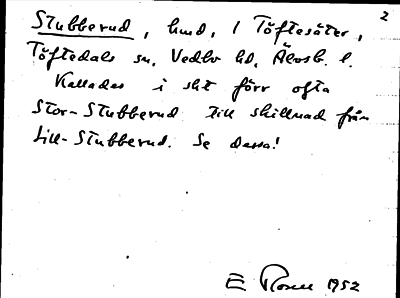 2
Stubberud, hmd, i Töftesäter,
Töftedals sn, Vedbo hd, Älvsb. l.
Kallades i skt förr ofta
Stor-Stubberud till skillnad från
Lill-Stubberud. Se dessa!
E Rosell 1952